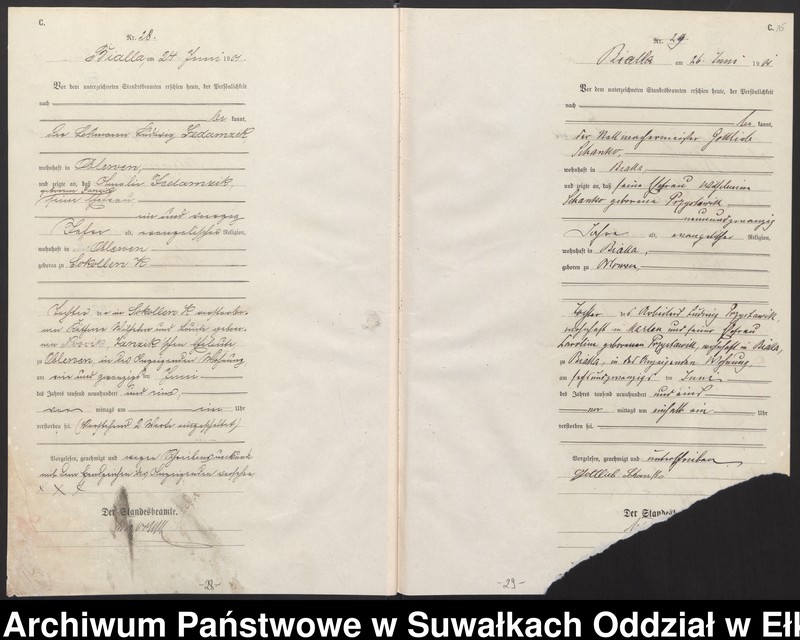 C.
Nr. 28.
Bialla, am 24 Juni 1901.
Vor dem unterzeichneten Standesbeamten erschien heute, der Persönlichkeit
nach
be kannt,
der Ludwig Sedamzik
wohnhaft in
und zeigte an, daß Sedamzik,
geborene
seine Ehefrau
ein und
Jahre alt, evangelischer Religion,
wohnhaft in
geboren zu Sokollen K
Tochter der in Sokollen K verstorbe-
nen Wilhelm und
Eheleute
zu in des Anzeigenden Wohnung,
am ein und zwanzigsten Juni
des Jahres tausend neunhundert und eins,
vor mittags um ein Uhr
verstorben sei. (Vorstehend 2 Worte ausgeschaltet)
Vorgelesen, genehmigt und wegen Schreibensunkunde
mit dem Handzeichen des Anzeigenden versehen
x x x
Der Standesbeamte.
-28-
C.
Nr. 29.
Bialla am 26. Juni 1901.
Vor dem unterzeichneten Standesbeamten erschien heute, der Persönlichkeit
nach
be kannt,
der Gottlieb
Schanko,
wohnhaft in Bialla,
und zeigte an, daß seine Ehefrau Wilhelmine
Schanko geborene Przystawik
neunundzwanzig
Jahre alt, evangelischer Religion,
wohnhaft in Bialla,
geboren zu
Tochter des Arbeiters Ludwig Przystawik,
wohnhaft in und seiner Ehefrau
Karoline, geborenen Przystawik, wohnhaft in Bialla,
zu Bialla, in des Anzeigenden Wohnung
am sechsundzwanzigsten Juni
des Jahres tausend neunhundert und eins
vor mittags um einhalb ein Uhr
verstorben sei.
Vorgelesen, genehmigt und unterschrieben
Gottlieb Schanko
Der Standesb
-29-
Archiwum Państwowe w Suwałkach Oddział w Eł